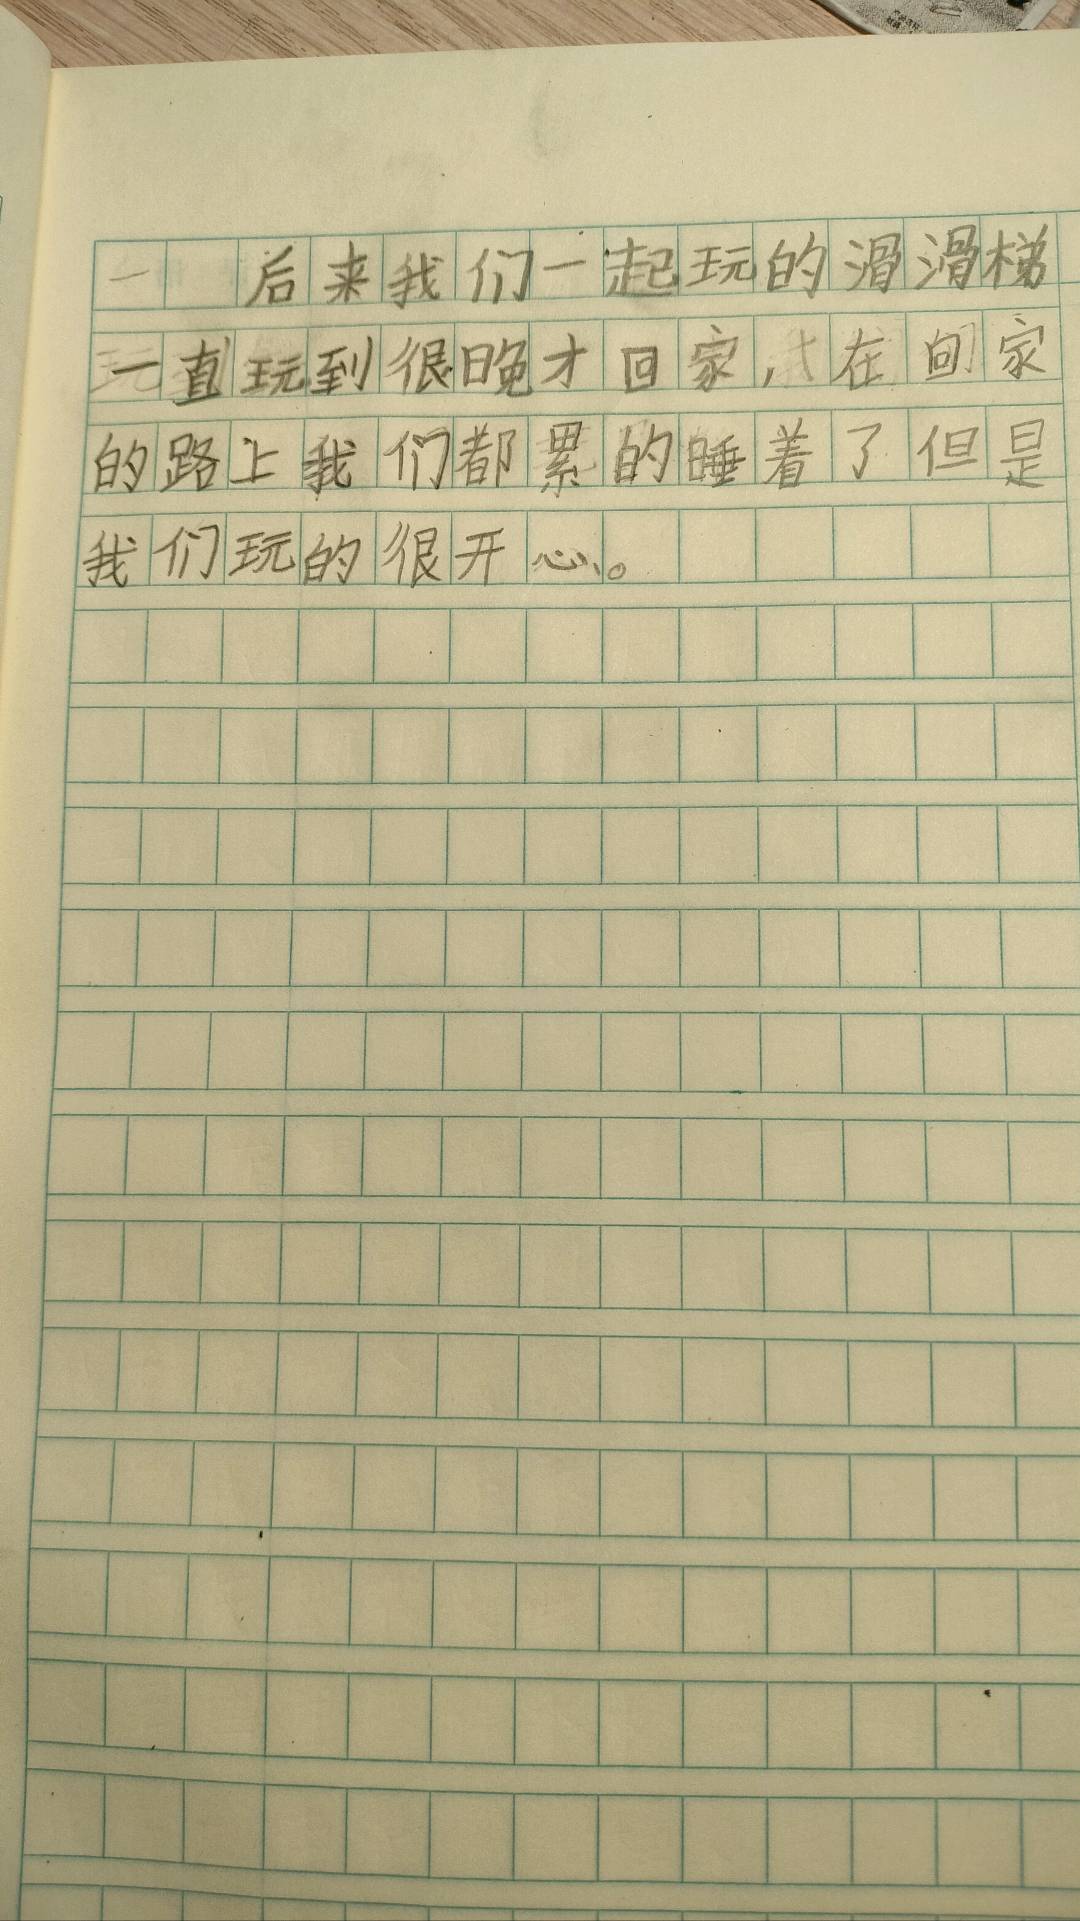 后来我们一起玩的滑滑梯
一直玩到很晚才回家，在回家
的路上我们都累的睡着了但是
我们玩的很开心。